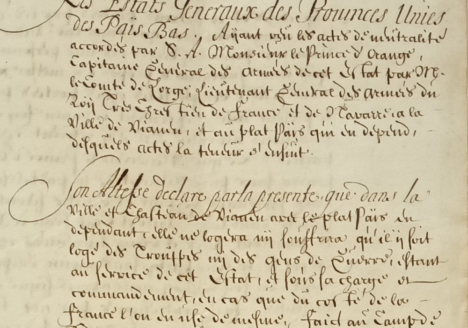 Les Estats Generaux des Provinces Unies
des Païs Bas, Aÿant veu les actes de neutralité
accordés par S. A. Monsieur le Prince d'Orange,
Capitaine General des armées de cet Estat par Mr.
le Comte de Lorge, Lieutenant General des armées du
Roÿ Tres Chrestien de France et de Navarre, a la
Ville de Vianen, et au plat Païs qui en depend,
desquels actes la teneur s'ensuit.
Son Altesse declare par la presente que dans la
Ville et Chasteau de Vianen avec le plat Païs en
dependant, elle ne logera nÿ souffrira, qu'il ÿ soit
logé des Trouppes nÿ des gens de Guerre, estant
au service de cet Estat, et sous sa charge et
commandement, en cas que du costé de la
France l'on en use de mesme, Faict au Camp de